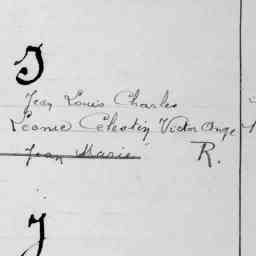 J
Jean Louis Charles
Léonie Célestin Victor Ange
Jean Marie R.
J